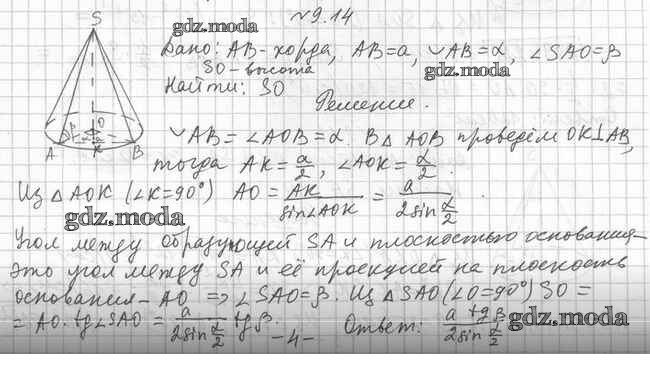 №9.14
S
gdz.moda
Дано: AB-хорда, AB=a, ◡AB=α, ∠SAO=β
SO-высота
gdz.moda
Найти: SO
Решение.
O
β
a
A K B
◡AB=∠AOB=α. В △ AOB проведём OK⊥AB,
тогда AK=a/2, ∠AOK=α/2.
Из △AOK (∠K=90°) AO = AK/sin∠AOK = a/2sin α/2.
gdz.moda
Угол между образующей SA и плоскостью основания-
это угол между SA и её проекцией на плоскость
основания-AO ⇒ ∠SAO=β. Из △SAO(∠O=90°) SO=
=AO·tg∠SAO = a/2sin α/2 tgβ. Ответ: a tgβ/2sin α/2
gdz.moda
-4-